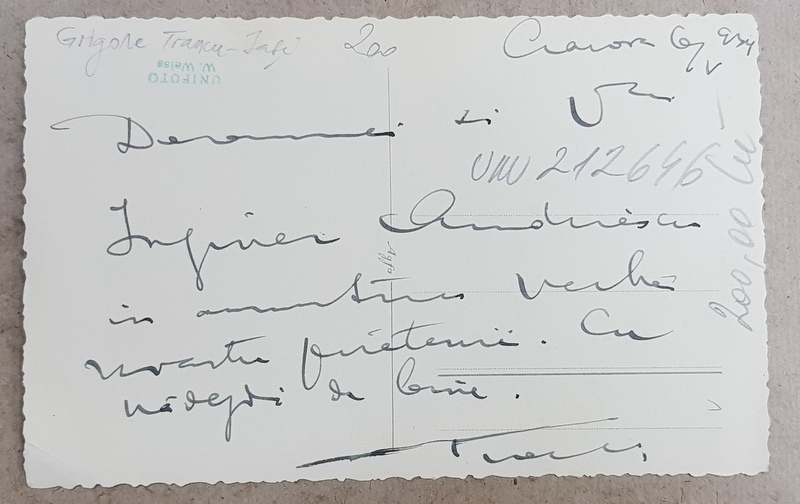 Grigore Trancu-Iași 200 Craiova 6/V 934
UNIFOTO
W. Weiss
Doamnei și
UNU 212646
200,00 lei
Inginer Andreescu
Agfa
în amintirea vechei
noastre prietenii. Cu
nădejdi de bine.